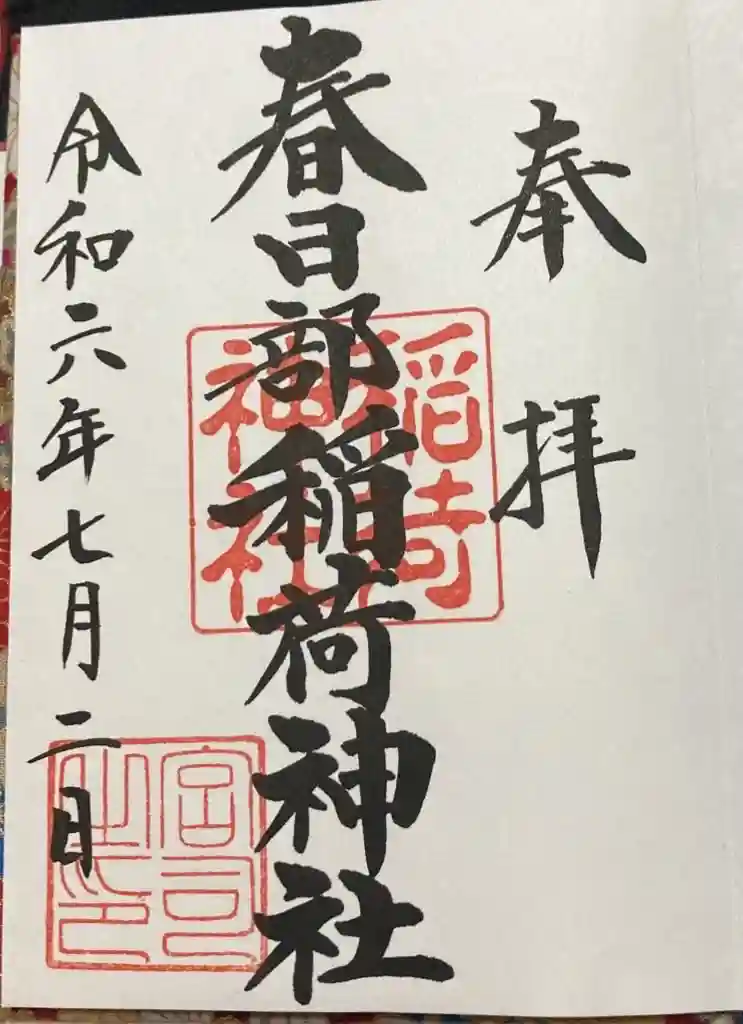 奉拝
春日部稲荷神社
稲荷
神社
令和六年七月二日
宮司
之印